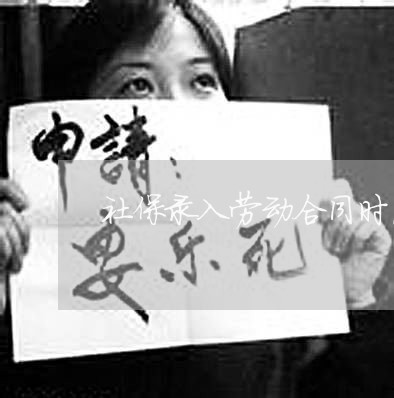 申請：
社保录入劳动合同时
安乐死